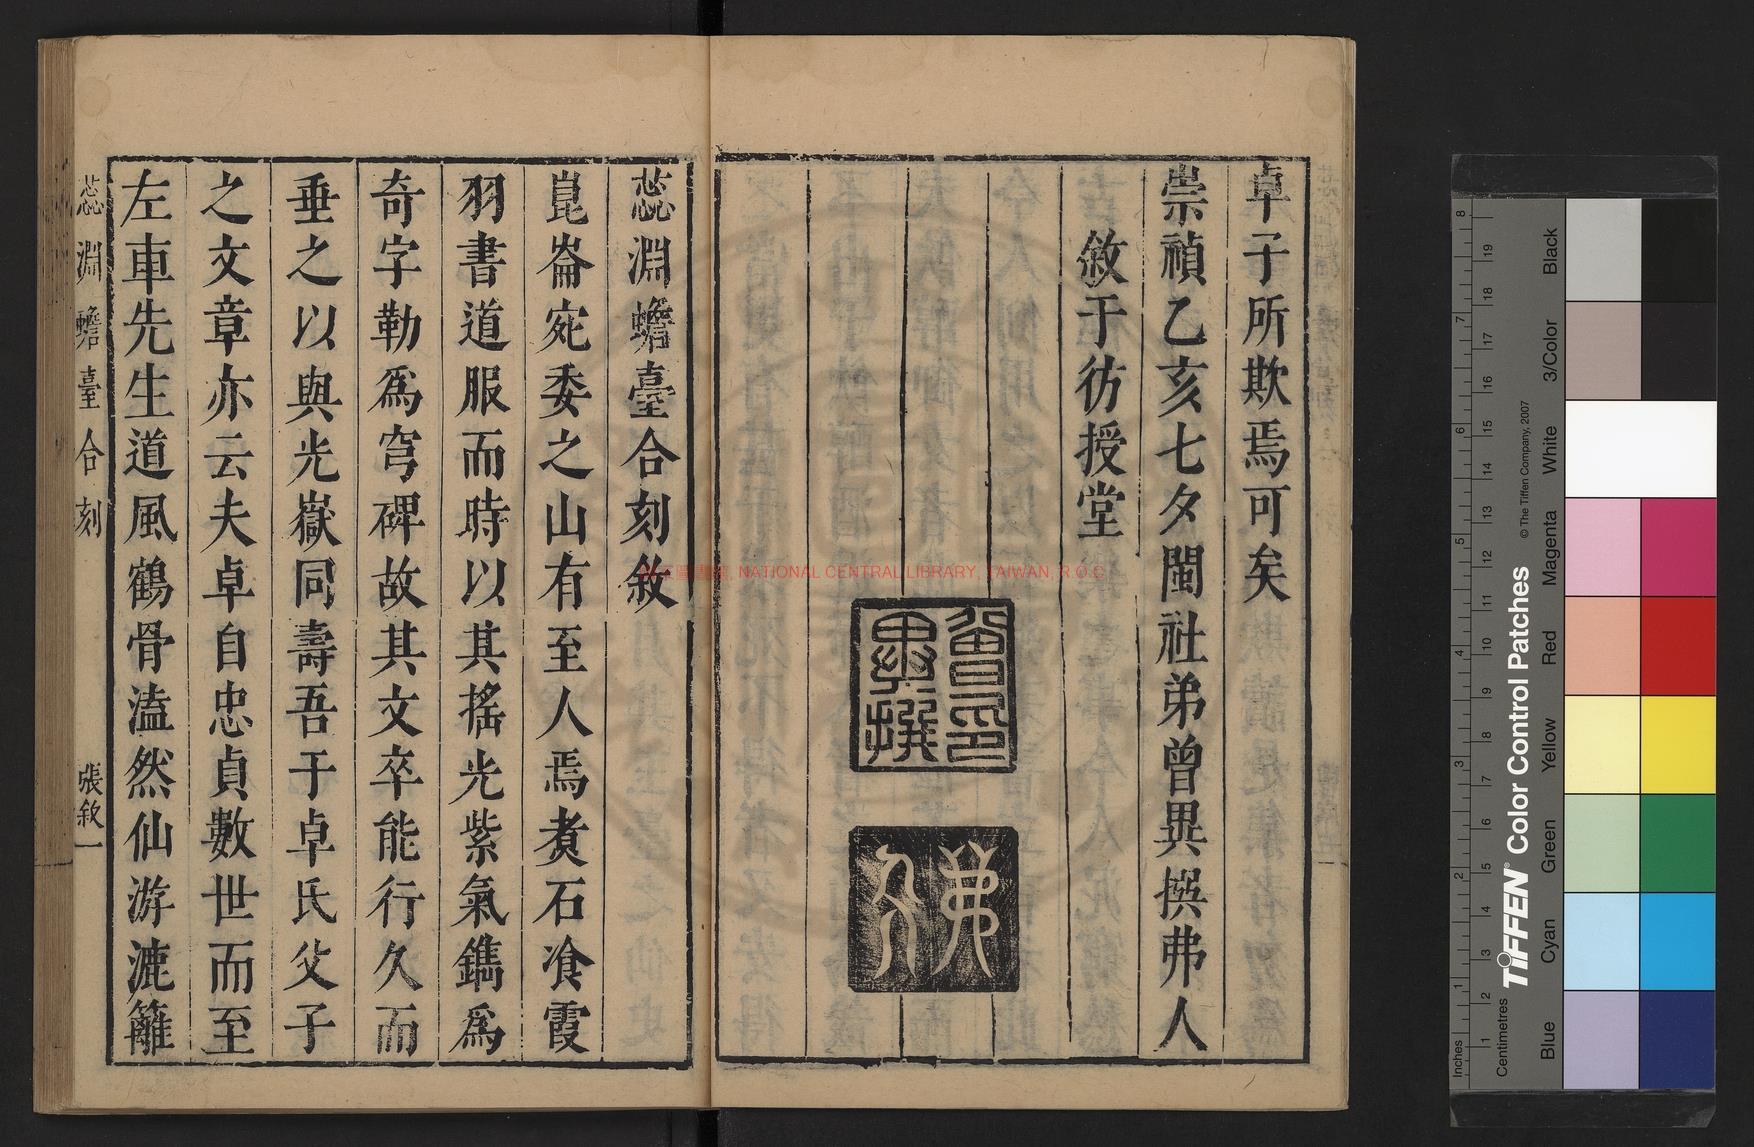 卓子所欺焉可矣
崇禎乙亥七夕閩社弟曾異撰弗人
敘于彷授堂
曾異撰印
弗人
蕊淵蟾臺合刻敘
崑崙宛委之山有至人焉煑石飡霞
羽書道服而時以其搖光紫氣鐫爲
奇字勒爲穹碑故其文卒能行久而
垂之以與光嶽同壽吾于卓氏父子
之文章亦云夫卓自忠貞數世而至
左車先生道風鶴骨溘然仙游漉籬
蕊淵蟾臺合刻
張敘一
NATIONAL CENTRAL LIBRARY, TAIWAN, R.O.C
Inches
Centimetres
1 2 3 4 5 6 7 8
1 2 3 4 5 6 7 8 9 10 11 12 13 14 15 16 17 18 19
TIFFEN® Color Control Patches
© The Tiffen Company, 2007
Blue
Cyan
Green
Yellow
Red
Magenta
White
3/Color
Black